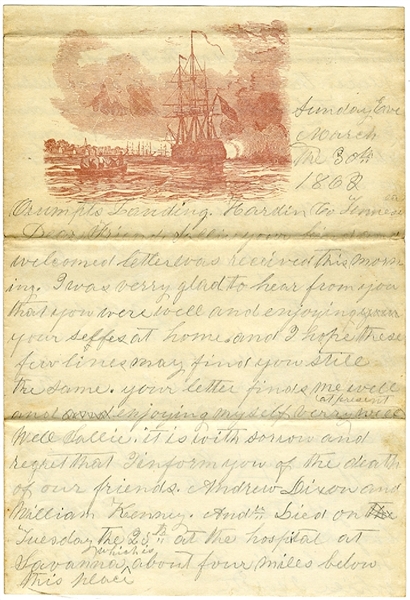 Sunday Eve
March
the 30th
1862
Crumpts Landing Hardin Co Tennessee
Dear Friend Callie your kind and
welcomed letter was received this morn
ing. I was verry glad to hear from you
that you were well and enjoying your
your selfes at home. and I hope these
few lines may find you still
the same. your letter finds me well
at present
and enjoying myself verry well
Well Callie. it is with sorrow and
regret that I inform you of the death
of our friends. Andrew Dixon and
William Kenney. Andw Died on the
Tuesday the 25th at the hospital at
which is
Savanna about four miles below
this place